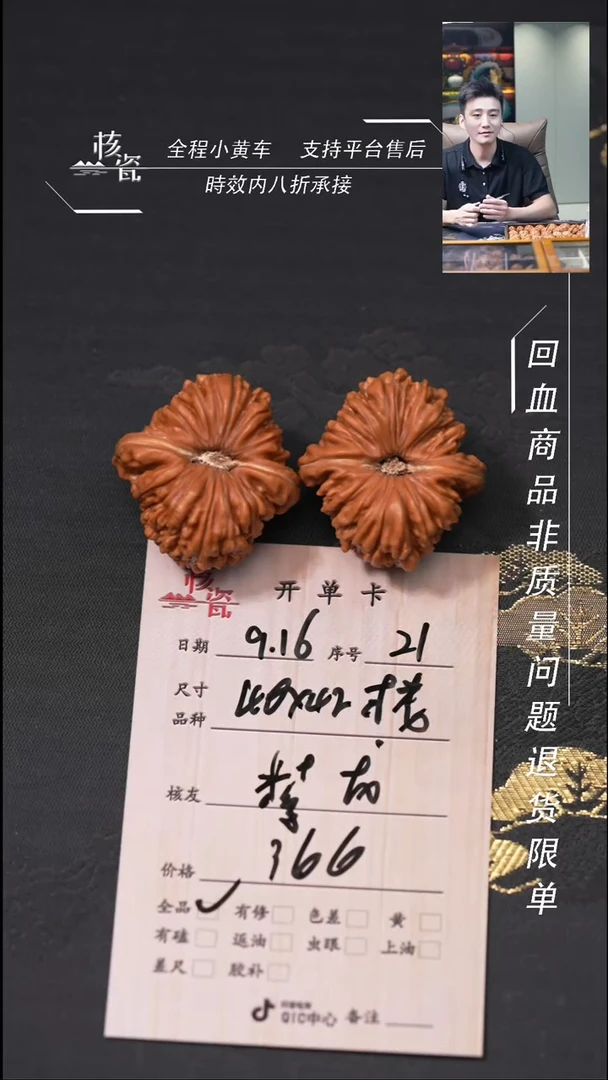 核瓷
全程小黄车 支持平台售后
時效内八折承接
回血商品非质量问题退货限单
核瓷
开单卡
日期 9.16 序号 21
尺寸
品种
核友
价格 366
全品 有修 色差 黄
有磕 返油 虫眼 上油
差尺 胶补
QIC中心 备注